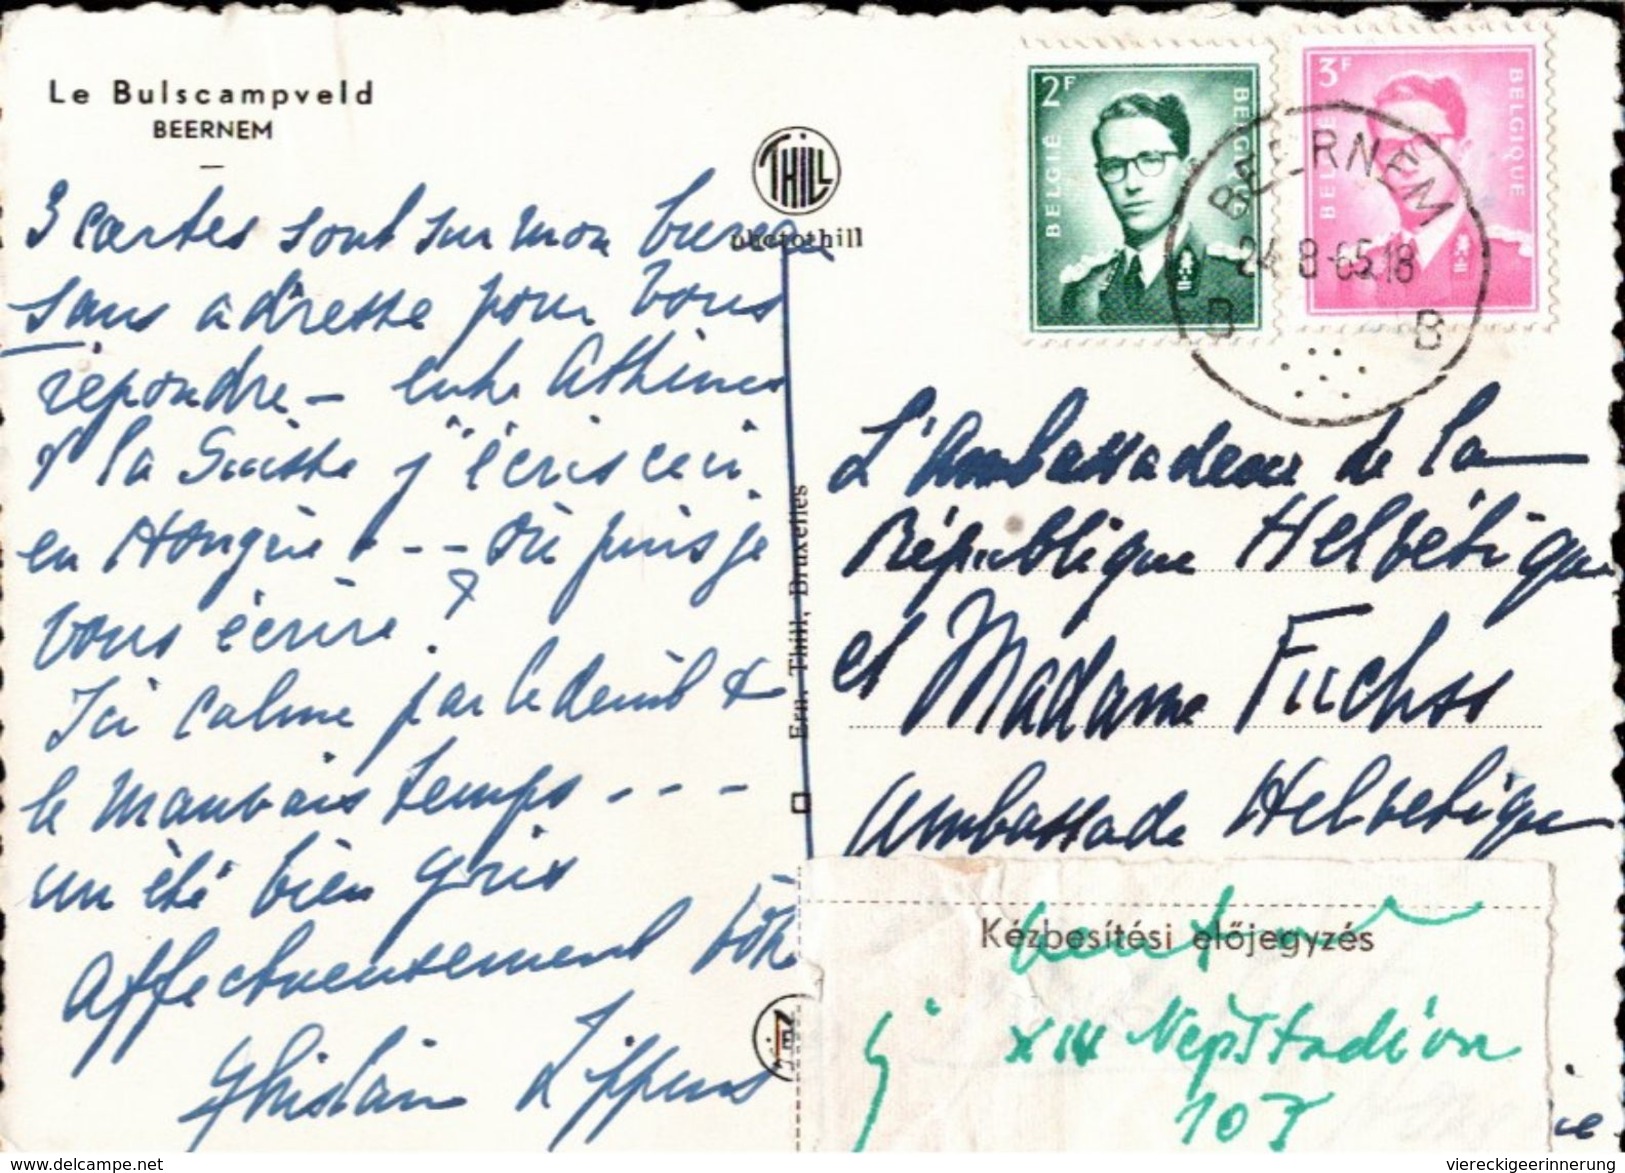 Le Bulscampveld
BEERNEM
3 cartes sont sur mon bureau
sans adresse pour vous
répondre – entre Athènes
& la Suisse j'écris ceci
en Hongrie . - - où puis je
vous écrire ?
Ici calme par le deuil &
le mauvais temps - - -
un été bien gris
Affectueusement vôtre
Ghislain Lippens
THILL
photothill
Ern. Thill, Bruxelles
2F
BELGIË
BELGIQUE
3F
BELGIË
BELGIQUE
BEERNEM
24-8-65.18
B B
L'Ambassadeur de la
République Helvétique
et Madame Fuchss
Ambassade Helvétique
Kézbesítési előjegyzés
XIV Népstadion
107
delcampe.net
viereckigeerinnerung